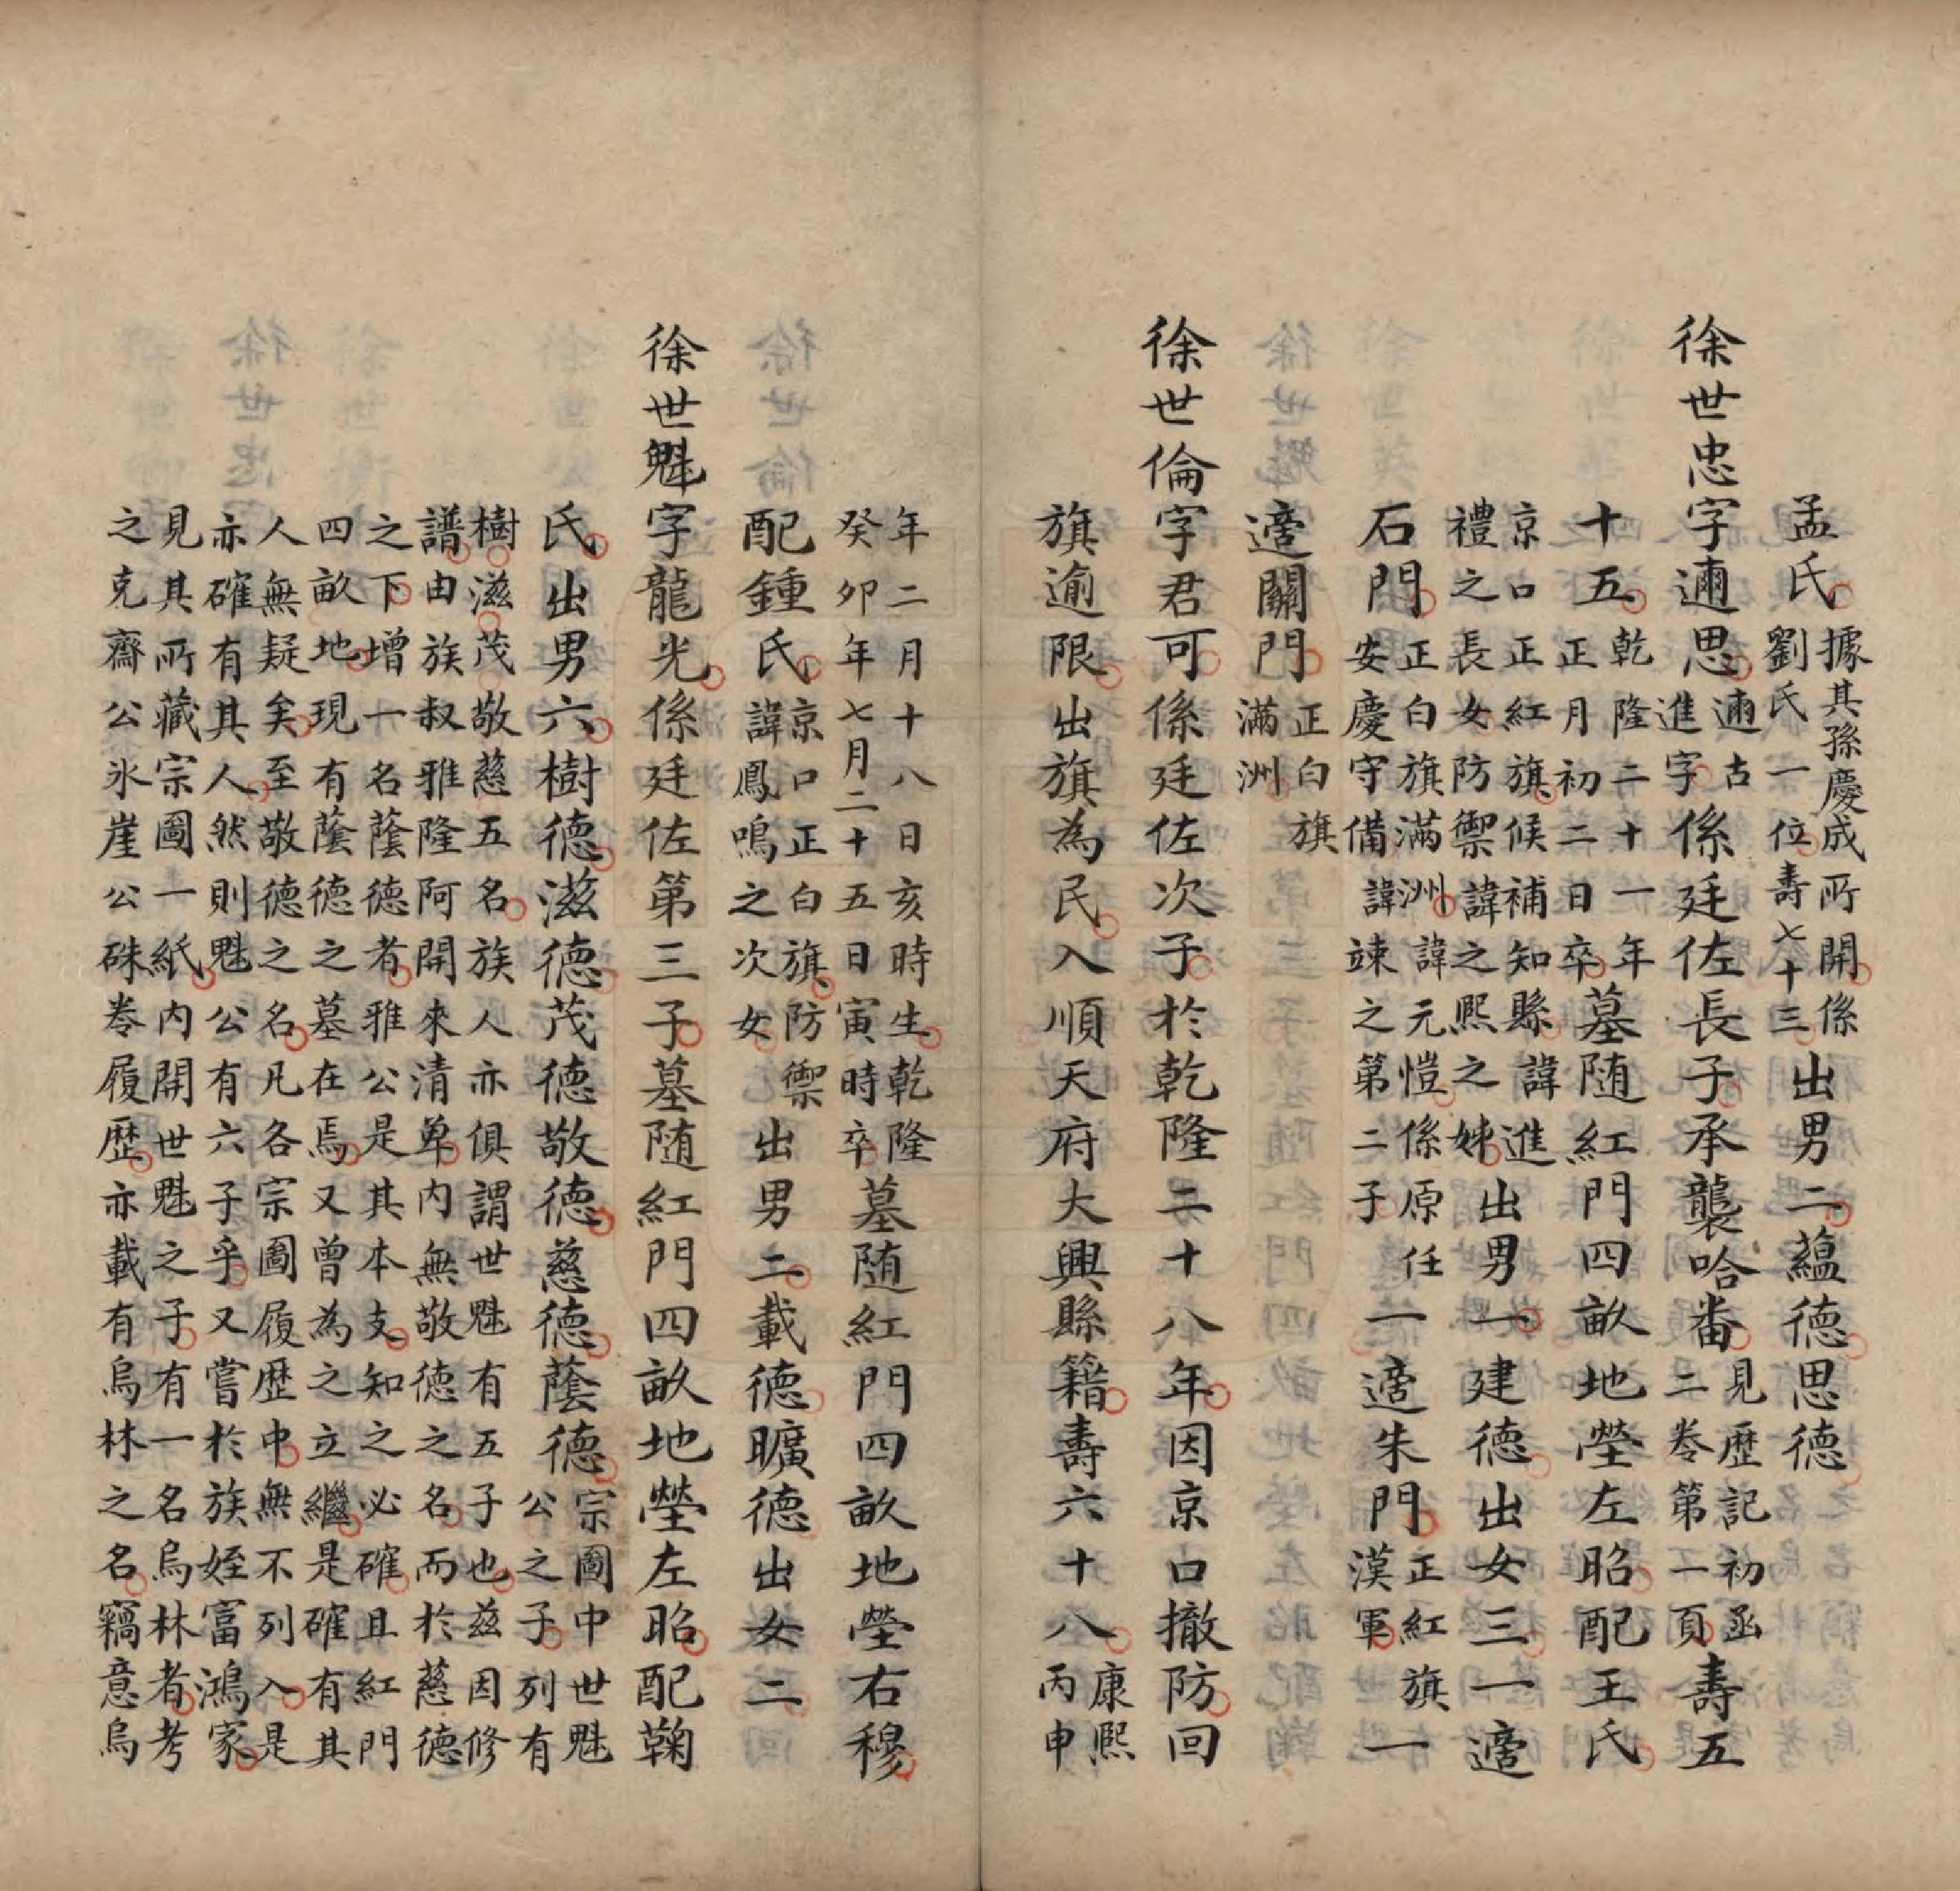 孟氏據其孫慶成所開係劉氏一位壽七十三出男二蘊德思德
徐世忠字邇思邇古進字係廷佐長子承襲哈番見歷記初函二卷第一頁壽五
十五乾隆二十一年正月初二日卒墓随紅門四畝地塋左昭配王氏
京口正紅旗候補知縣諱進禮之長女防禦諱之熙之姊出男一建德出女三一適
石門正白旗滿洲諱元愷係原任安慶守備諱竦之第二子一適朱門正紅旗漢軍一
適關門正白旗滿洲
徐世倫字君可係廷佐次子於乾隆二十八年因京口撤防回
旗逾限出旗為民入順天府大興縣籍壽六十八康熙丙申
年二月十八日亥時生乾隆癸卯年七月二十五日寅時卒墓随紅門四畝地塋右穆
配鍾氏京口正白旗防禦諱鳳鳴之次女出男二載德曠德出女二
徐世魁字龍光係廷佐第三子墓随紅門四畝地塋左昭配鞠
氏出男六樹德滋德茂德敬德慈德蔭德宗圖中世魁公之子列有
樹滋茂敬慈五名族人亦俱謂世魁有五子也茲因修
譜由族叔雅隆阿開來清单内無敬德之名而於慈德
之下增一名蔭德者雅公是其本支知之必確且紅門
四畝地現有蔭德之墓在焉又曾為之立繼是確有其
人無疑矣至敬德之名凡各宗圖履歷中無不列入是
亦確有其人然則魁公有六子乎又嘗於族姪富鴻家
見其所藏宗圖一紙内開世魁之子有一名烏林者考
之克齋公氷崖公硃卷履歷亦載有烏林之名竊意烏